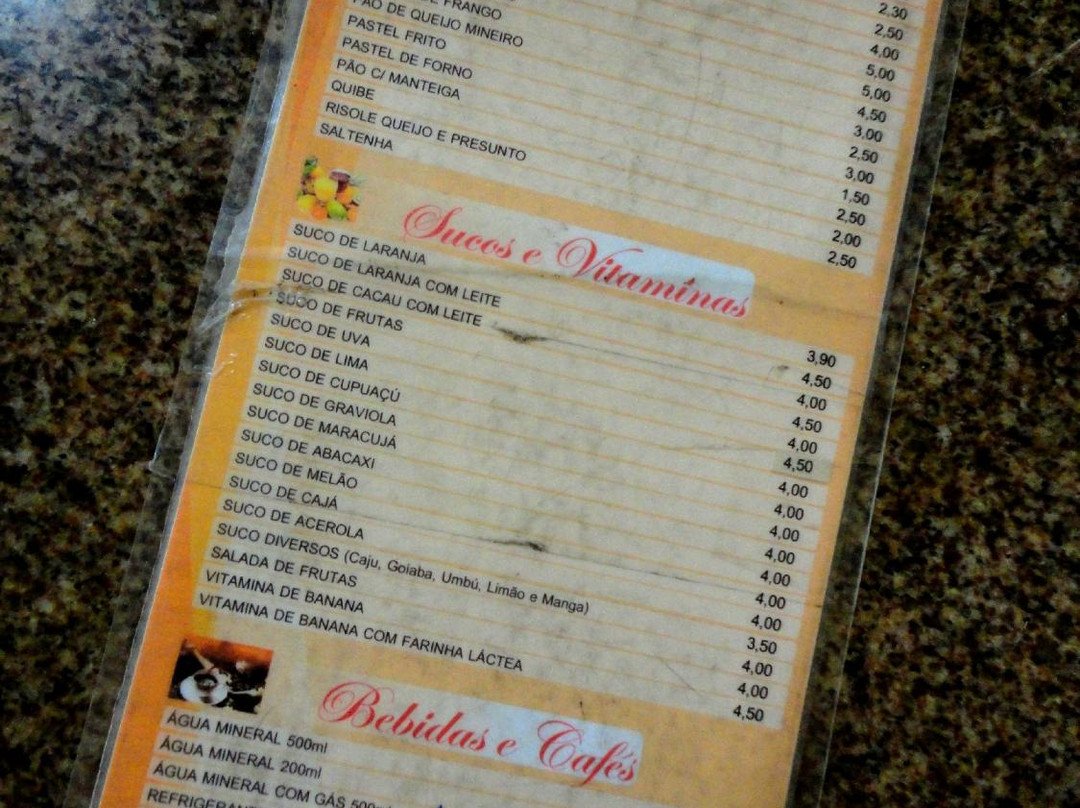 2,30
2,50
4,00
5,00
5,00
FRANGO 4,50
PÃO DE QUEIJO MINEIRO 3,00
PASTEL FRITO 2,50
PASTEL DE FORNO 3,00
PÃO C/ MANTEIGA 1,50
QUIBE 2,50
RISOLE QUEIJO E PRESUNTO 2,00
SALTENHA 2,50
Sucos e Vitaminas
SUCO DE LARANJA 3,90
SUCO DE LARANJA COM LEITE 4,50
SUCO DE CACAU COM LEITE 4,00
SUCO DE FRUTAS 4,50
SUCO DE UVA 4,00
SUCO DE LIMA 4,50
SUCO DE CUPUAÇÚ 4,00
SUCO DE GRAVIOLA 4,00
SUCO DE MARACUJÁ 4,00
SUCO DE ABACAXI 4,00
SUCO DE MELÃO 4,00
SUCO DE CAJÁ 4,00
SUCO DE ACEROLA 4,00
SUCO DIVERSOS (Caju, Goiaba, Umbú, Limão e Manga) 3,50
SALADA DE FRUTAS 4,00
VITAMINA DE BANANA 4,00
VITAMINA DE BANANA COM FARINHA LÁCTEA 4,50
Bebidas e Cafés
ÁGUA MINERAL 500ml
ÁGUA MINERAL 200ml
ÁGUA MINERAL COM GÁS